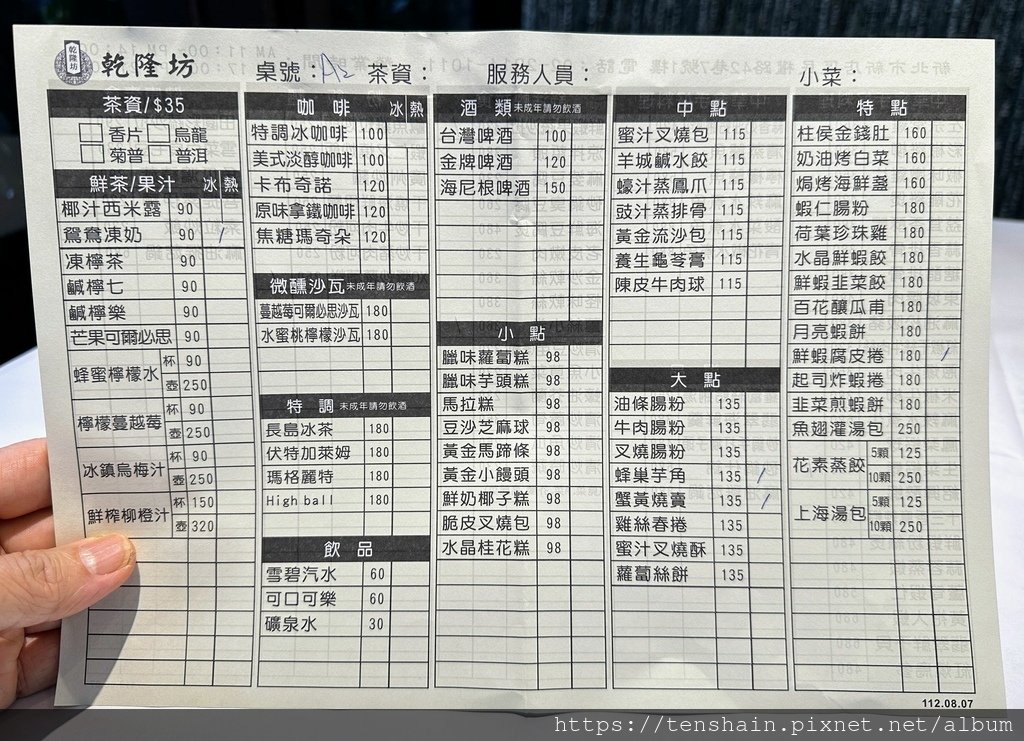 乾隆坊
乾隆坊 桌號：A12 茶資： 服務人員： 小菜：
茶資/$35
香片 烏龍
菊普 普洱
鮮茶/果汁 冰 熱
椰汁西米露 90
鴛鴦凍奶 90 /
凍檸茶 90
鹹檸七 90
鹹檸樂 90
芒果可爾必思 90
蜂蜜檸檬水 杯 90
壺 250
檸檬蔓越莓 杯 90
壺 250
冰鎮烏梅汁 杯 90
壺 250
鮮榨柳橙汁 杯 150
壺 320
咖啡 冰 熱
特調冰咖啡 100
美式淡醇咖啡 100
卡布奇諾 120
原味拿鐵咖啡 120
焦糖瑪奇朵 120
微醺沙瓦 未成年請勿飲酒
蔓越莓可爾必思沙瓦 180
水蜜桃檸檬沙瓦 180
特調 未成年請勿飲酒
長島冰茶 180
伏特加萊姆 180
瑪格麗特 180
High ball 180
飲品
雪碧汽水 60
可口可樂 60
礦泉水 30
酒類 未成年請勿飲酒
台灣啤酒 100
金牌啤酒 120
海尼根啤酒 150
小點
臘味蘿蔔糕 98
臘味芋頭糕 98
馬拉糕 98
豆沙芝麻球 98
黃金馬蹄條 98
黃金小饅頭 98
鮮奶椰子糕 98
脆皮叉燒包 98
水晶桂花糕 98
中點
蜜汁叉燒包 115
羊城鹹水餃 115
蠔汁蒸鳳爪 115
豉汁蒸排骨 115
黃金流沙包 115
養生龜苓膏 115
陳皮牛肉球 115
大點
油條腸粉 135
牛肉腸粉 135
叉燒腸粉 135
蜂巢芋角 135 /
蟹黃燒賣 135 /
雞絲春捲 135
蜜汁叉燒酥 135
蘿蔔絲餅 135
特點
柱侯金錢肚 160
奶油烤白菜 160
焗烤海鮮盞 160
蝦仁腸粉 180
荷葉珍珠雞 180
水晶鮮蝦餃 180
鮮蝦韭菜餃 180
百花釀瓜甫 180
月亮蝦餅 180
鮮蝦腐皮捲 180 /
起司炸蝦捲 180
韭菜煎蝦餅 180
魚翅灌湯包 250
花素蒸餃 5顆 125
10顆 250
上海湯包 5顆 125
10顆 250
112.08.07
https://tenshain.pixnet.net/album